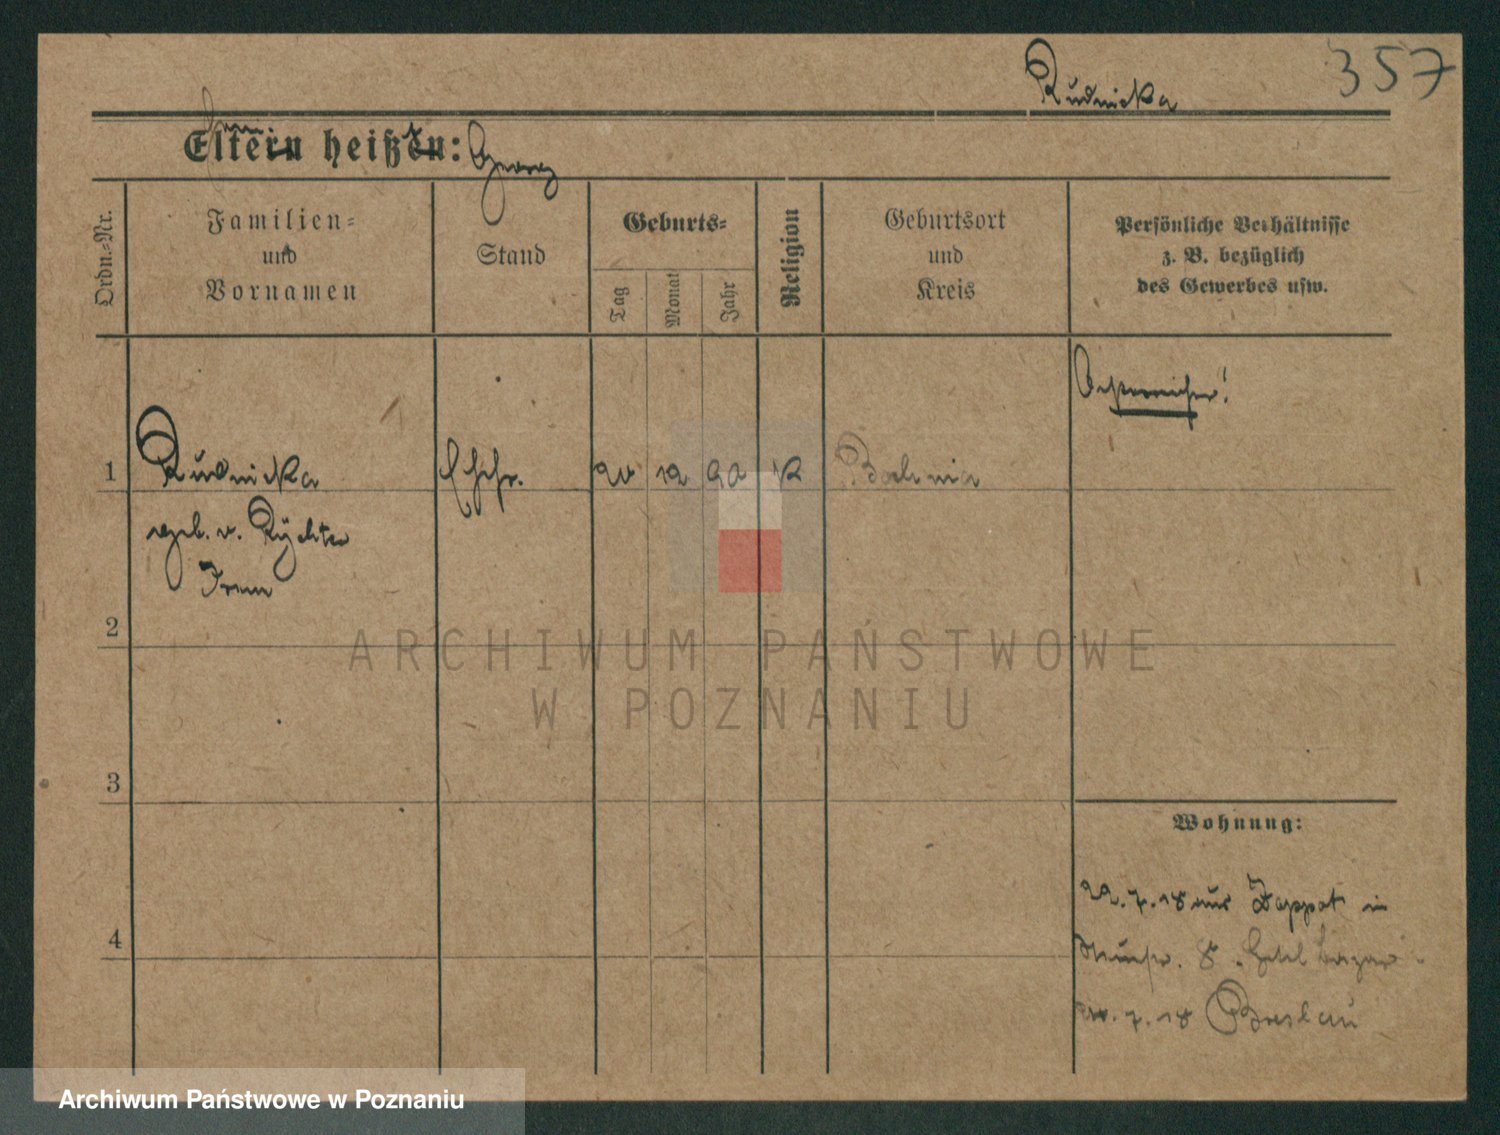 357
Rudnicka
Eltern heißen: Georg
Ordn.-Nr.
Familien-
und
Vornamen
Stand
Geburts-
Tag
Monat
Jahr
Religion
Geburtsort
und
Kreis
Persönliche Verhältnisse
z. B. bezüglich
des Gewerbes usw.
Österreicher!
1 Rudnicka Ehefr. 12 90 K Bochnia
geb. v. Rychter
Irene
2
3
4
Wohnung:
22.7.18 aus Zoppot in
8. Hotel Bazar
7.18 Breslau
ARCHIWUM PAŃSTWOWE
W POZNANIU
Archiwum Państwowe w Poznaniu